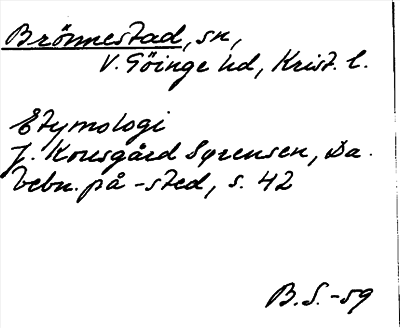 Brönnestad, sn,
V. Göinge hd, Krist. l.
Etymologi
J. Kousgård Sørensen, Da.
bebn. på -sted, s. 42
B.S. -59